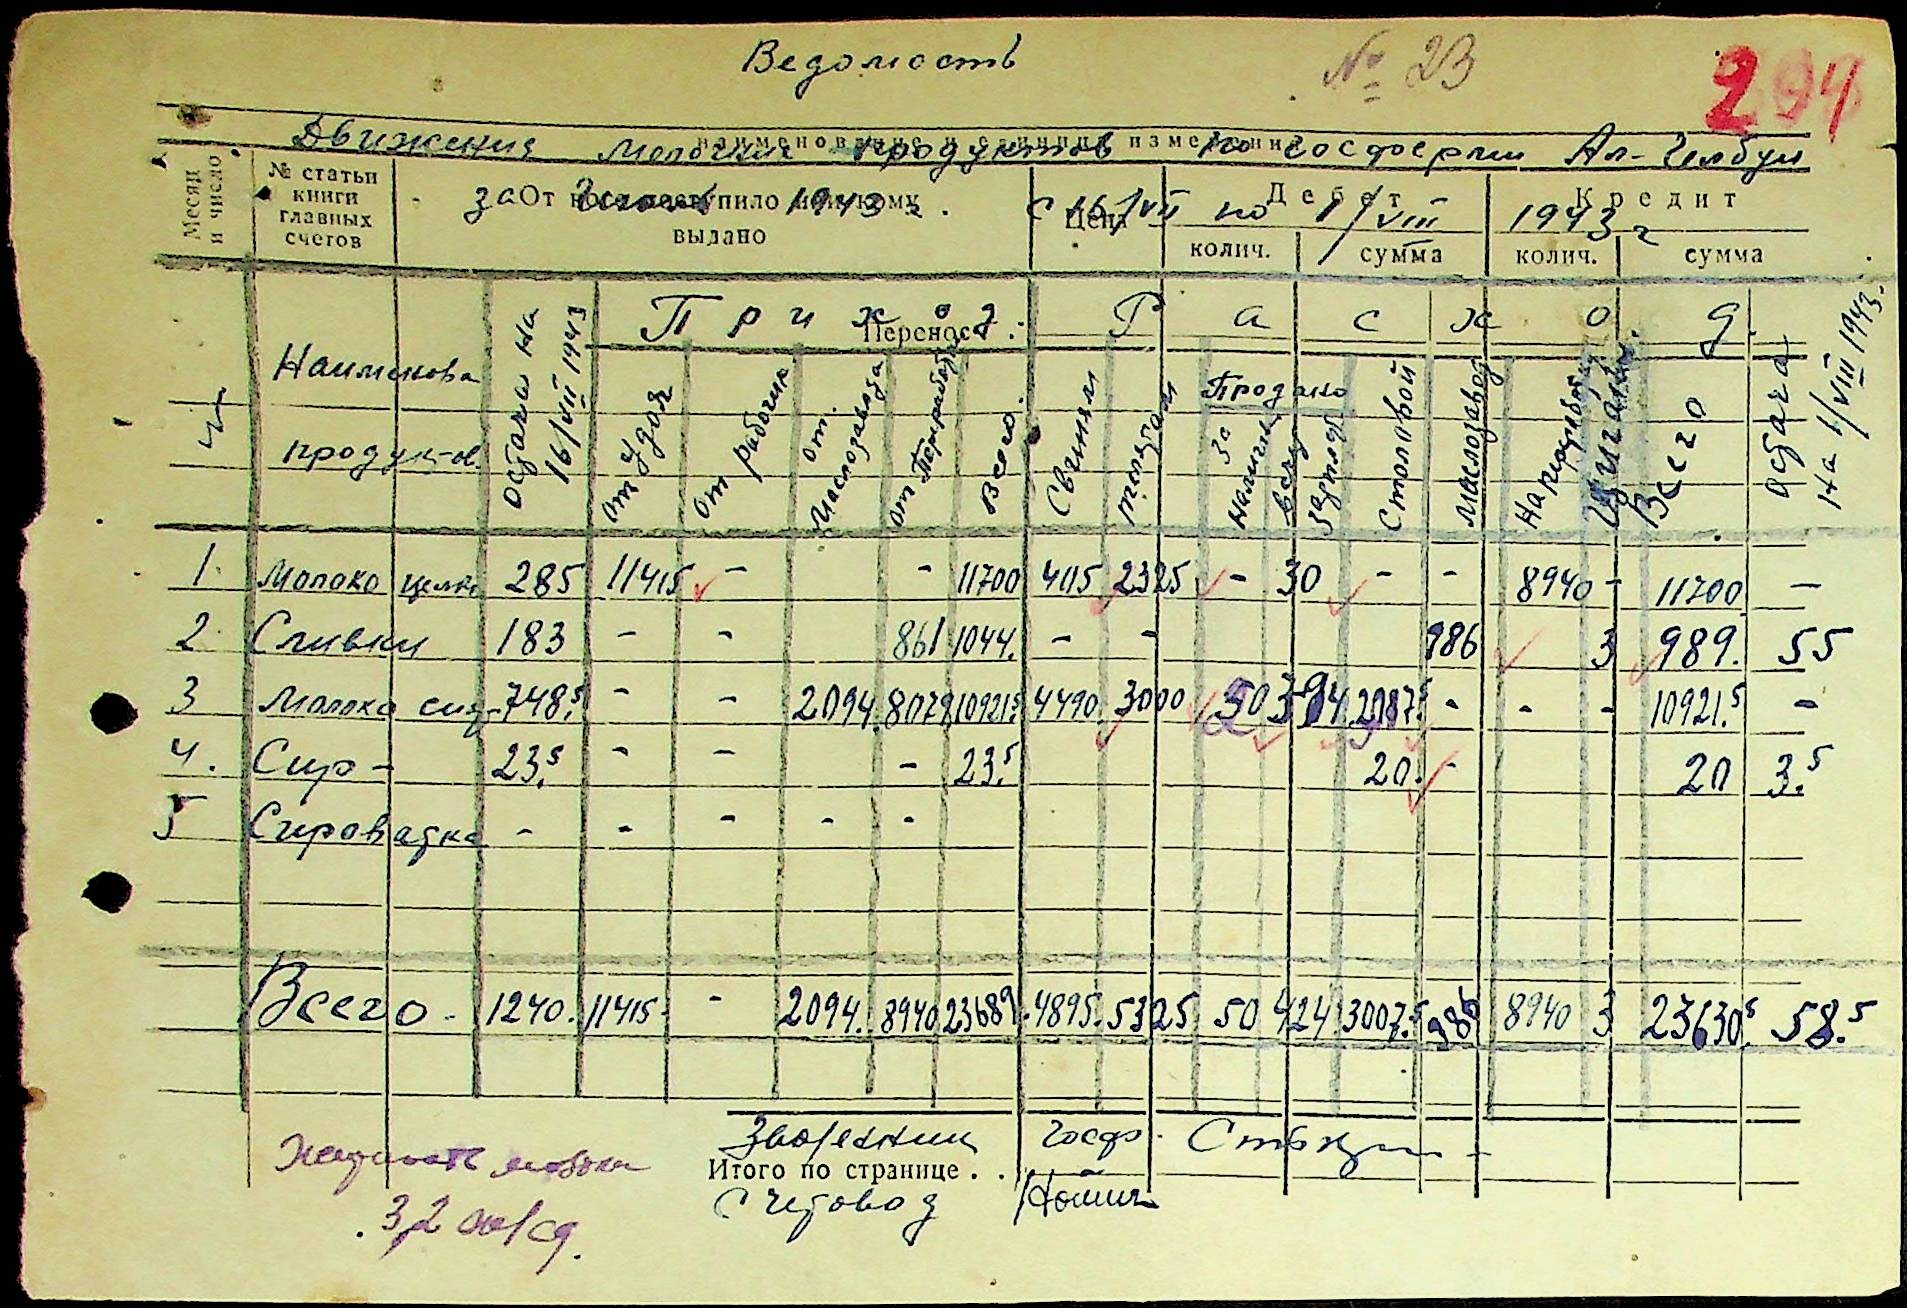 Ведомость № 23 294
наименование и единица измерения
Движения молочних продуктов по Госферми Ал-
Месяц и число
№ статьи книги главных счетов
От кого поступило или кому выдано
Цена
Дебет
Кредит
за 1943 г. с 16/VII по 1/VIII 1943 г
колич. сумма колич. сумма
Приход. Расход.
Перенос
Наименова продуктов
Остача на 16/VII 1943
от удоя
от рабочих
от маслозавода
от Переработк
Всего.
Свиням
телятам
Продано
за наличн
в счет зарпл
Столовой
маслозавод
На переработку
Всего
Остача на 1/VIII 1943.
1. Молоко цельн 285 11415 - - 11700 405 2325 - 30 - - 8940 - 11700 -
2. Сливки 183 - - 861 1044. - - 986 3 989. 55
3 Молоко сня- 748.5 - - 2094. 8079 10921.5 4490. 3000 50 394 2987.5 - - - 10921.5 -
4. Сир - 23.5 - - - 23.5 20. - 20 3.5
5 Сироватка - - - - -
Всего - 1240. 11415 - 2094. 8940 23689. 4895. 5325 50 424 3007.5 986 8940 3 23630.5 58.5
госф.
молока
Итого по странице . .
3,2
Счетовод